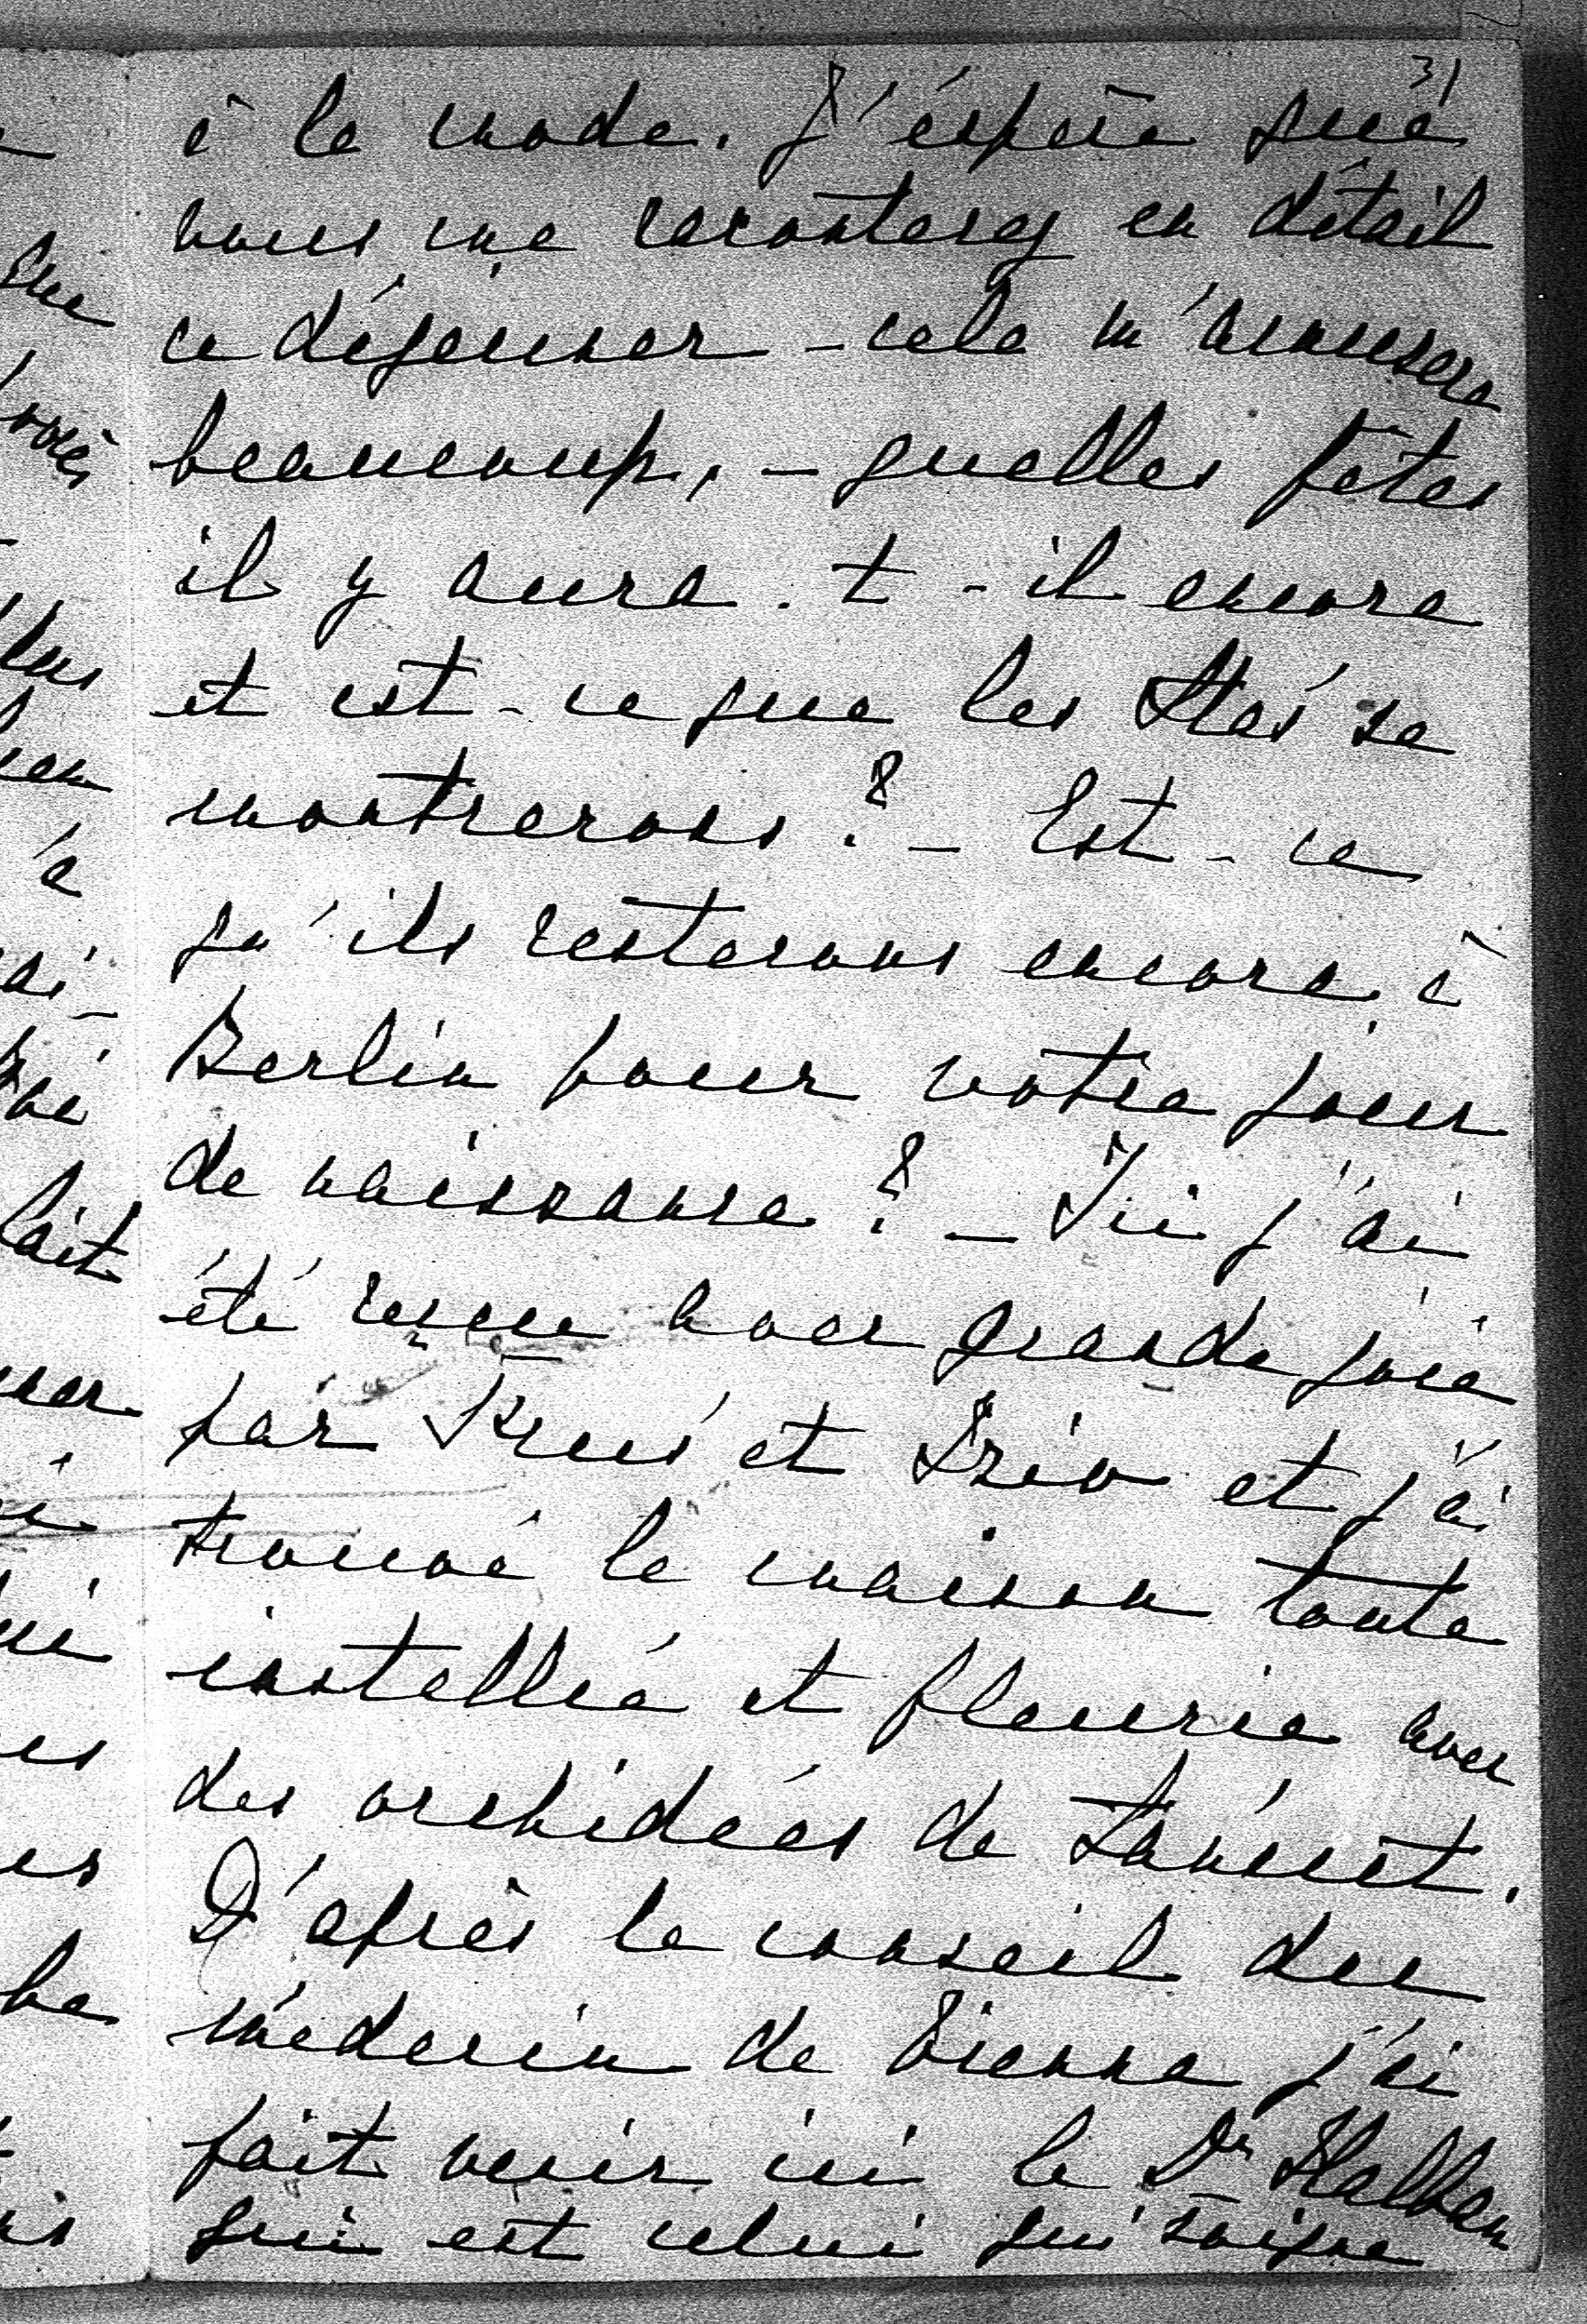 31
à la mode. J'éspère que
vous me raconterez en détail
ce déjeuner - cela m'amusera
beaucoup, - quelles fêtes
il y aura-t-il encore
et est-ce que les se
montrerons ? - Est-ce
qu'ils resterons encore à
Berlin pour votre jour
de naissance ? - Ici j'ai
été reçue avec grande joie
par et et j'ai
trouvé la maison toute
installée et fleurie avec
des orchidées de Lancut.
D'après le conseil du
médecin de Vienne j'ai
fait venir ici le Dr Halban
qui est celui qui soigne